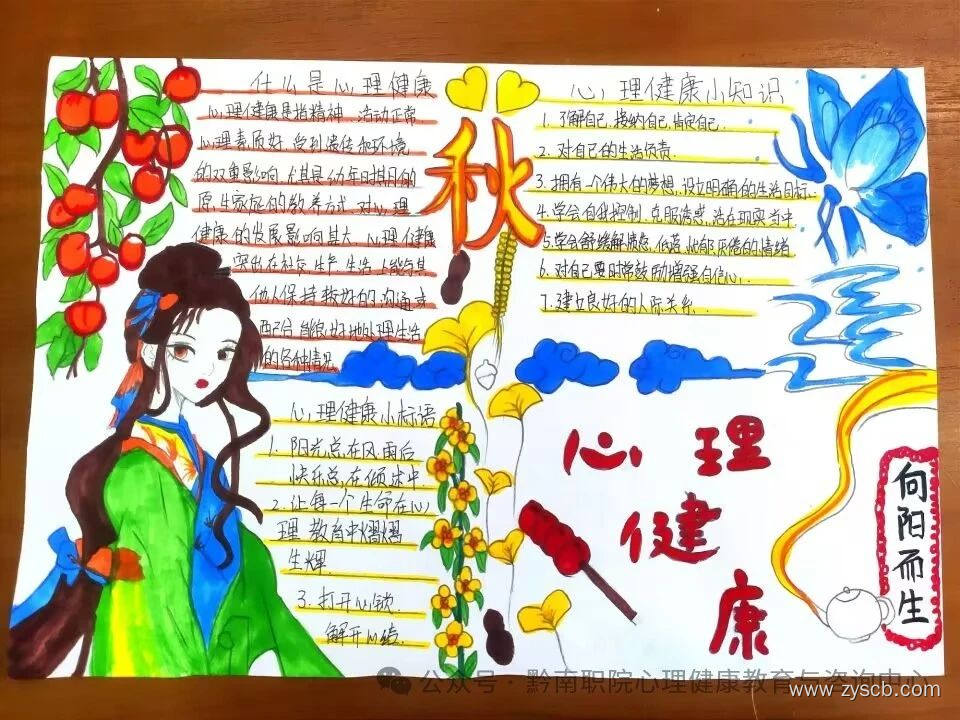 什么是心理健康
心理健康是指精神、活动正常
心理素质好,受到遗传和环境
的双重影响,尤其是幼年时期的
原生家庭的教养方式,对心理
健康的发展影响甚大,心理健康
突出在社交,生产,生活上能与其
他人保持较好的沟通或
配合,能良好地处理生活
的各种情况
秋
心理健康小知识
1.了解自己,接纳自己,肯定自己.
2.对自己的生活负责.
3.拥有一个伟大的梦想,设立明确的生活目标.
4.学会自我控制,克服情感,活在现实当中
5.学会舒缓解
低落
厌倦的情绪
6.对自己要时常鼓励增强自信心.
7.建立良好的人际关系.
心理健康小标语
1.阳光总在风雨后
快乐总在倾诉中
2.让每一个生命在心
理教育中熠熠
生辉
3.打开心锁
解开心结.
心理
健
康
向阳而生
公众号·黔南职院心理健康教育与咨询中心
www.zyscb.com